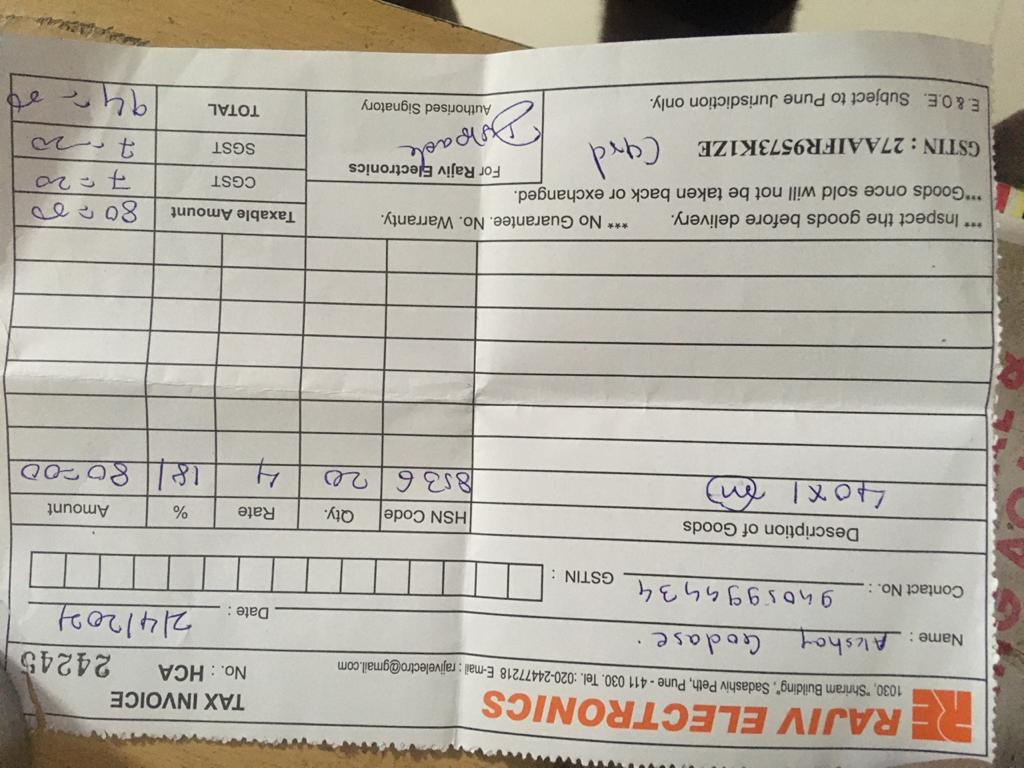 RE RAJIV ELECTRONICS
TAX INVOICE
1030, "Shriram Building", Sadashiv Peth, Pune - 411 030. Tel. :020-24477218 E-mail : rajivelectro@gmail.com
No. : HCA 24245
Name : Akshay Godase.
Date : 2/4/2021
Contact No. : 9405994434 GSTIN :
Description of Goods HSN Code Qty. Rate % Amount
40x1 (m) 8536 20 4 18% 80=00
*** Inspect the goods before delivery. *** No Guarantee. No. Warranty.
***Goods once sold will not be taken back or exchanged.
GSTIN : 27AAIFR9573K1ZE Card
E.& O.E. Subject to Pune Jurisdiction only.
For Rajiv Electronics
Authorised Signatory
Taxable Amount 80=00
CGST 7=20
SGST 7=20
TOTAL 94=00